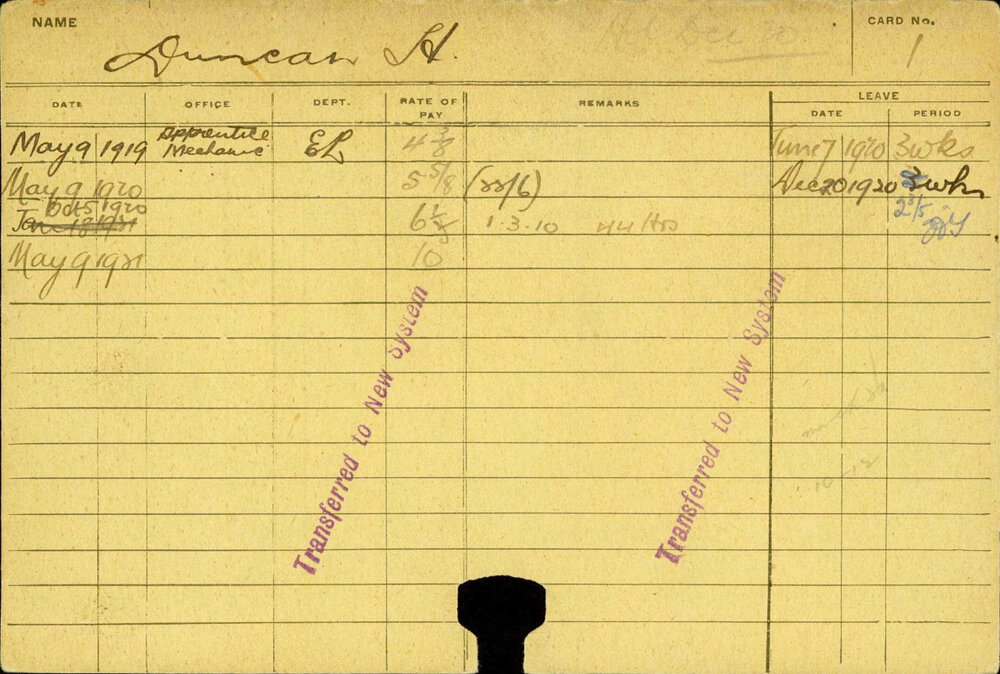 NAME
CARD No.
Duncan H.
1
DATE OFFICE DEPT. RATE OF PAY REMARKS LEAVE
DATE PERIOD
May 9 1919 Apprentice Mechanic EL 4 June 7 1920 3 wks
May 9 1920 5 5/8 (22/6) Dec 20 1920 3 wks
Oct 5 1920 6 1.3.10 44 Hrs 2 3/5
May 9 1921 10
Transferred to New System
Transferred to New System